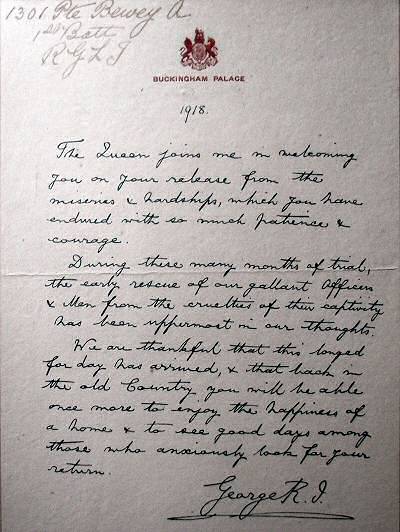 1301 Pte Bewey A
1st Batt
R G L I
BUCKINGHAM PALACE
1918.
The Queen joins me in welcoming
you on your release from the
miseries & hardships, which you have
endured with so much patience &
courage.
During these many months of trial,
the early rescue of our gallant Officers
& Men from the cruelties of their captivity
has been uppermost in our thoughts.
We are thankful that this longed
for day has arrived, & that back in
the old Country you will be able
once more to enjoy the happiness of
a home & to see good days among
those who anxiously look for your
return.
George R.I.